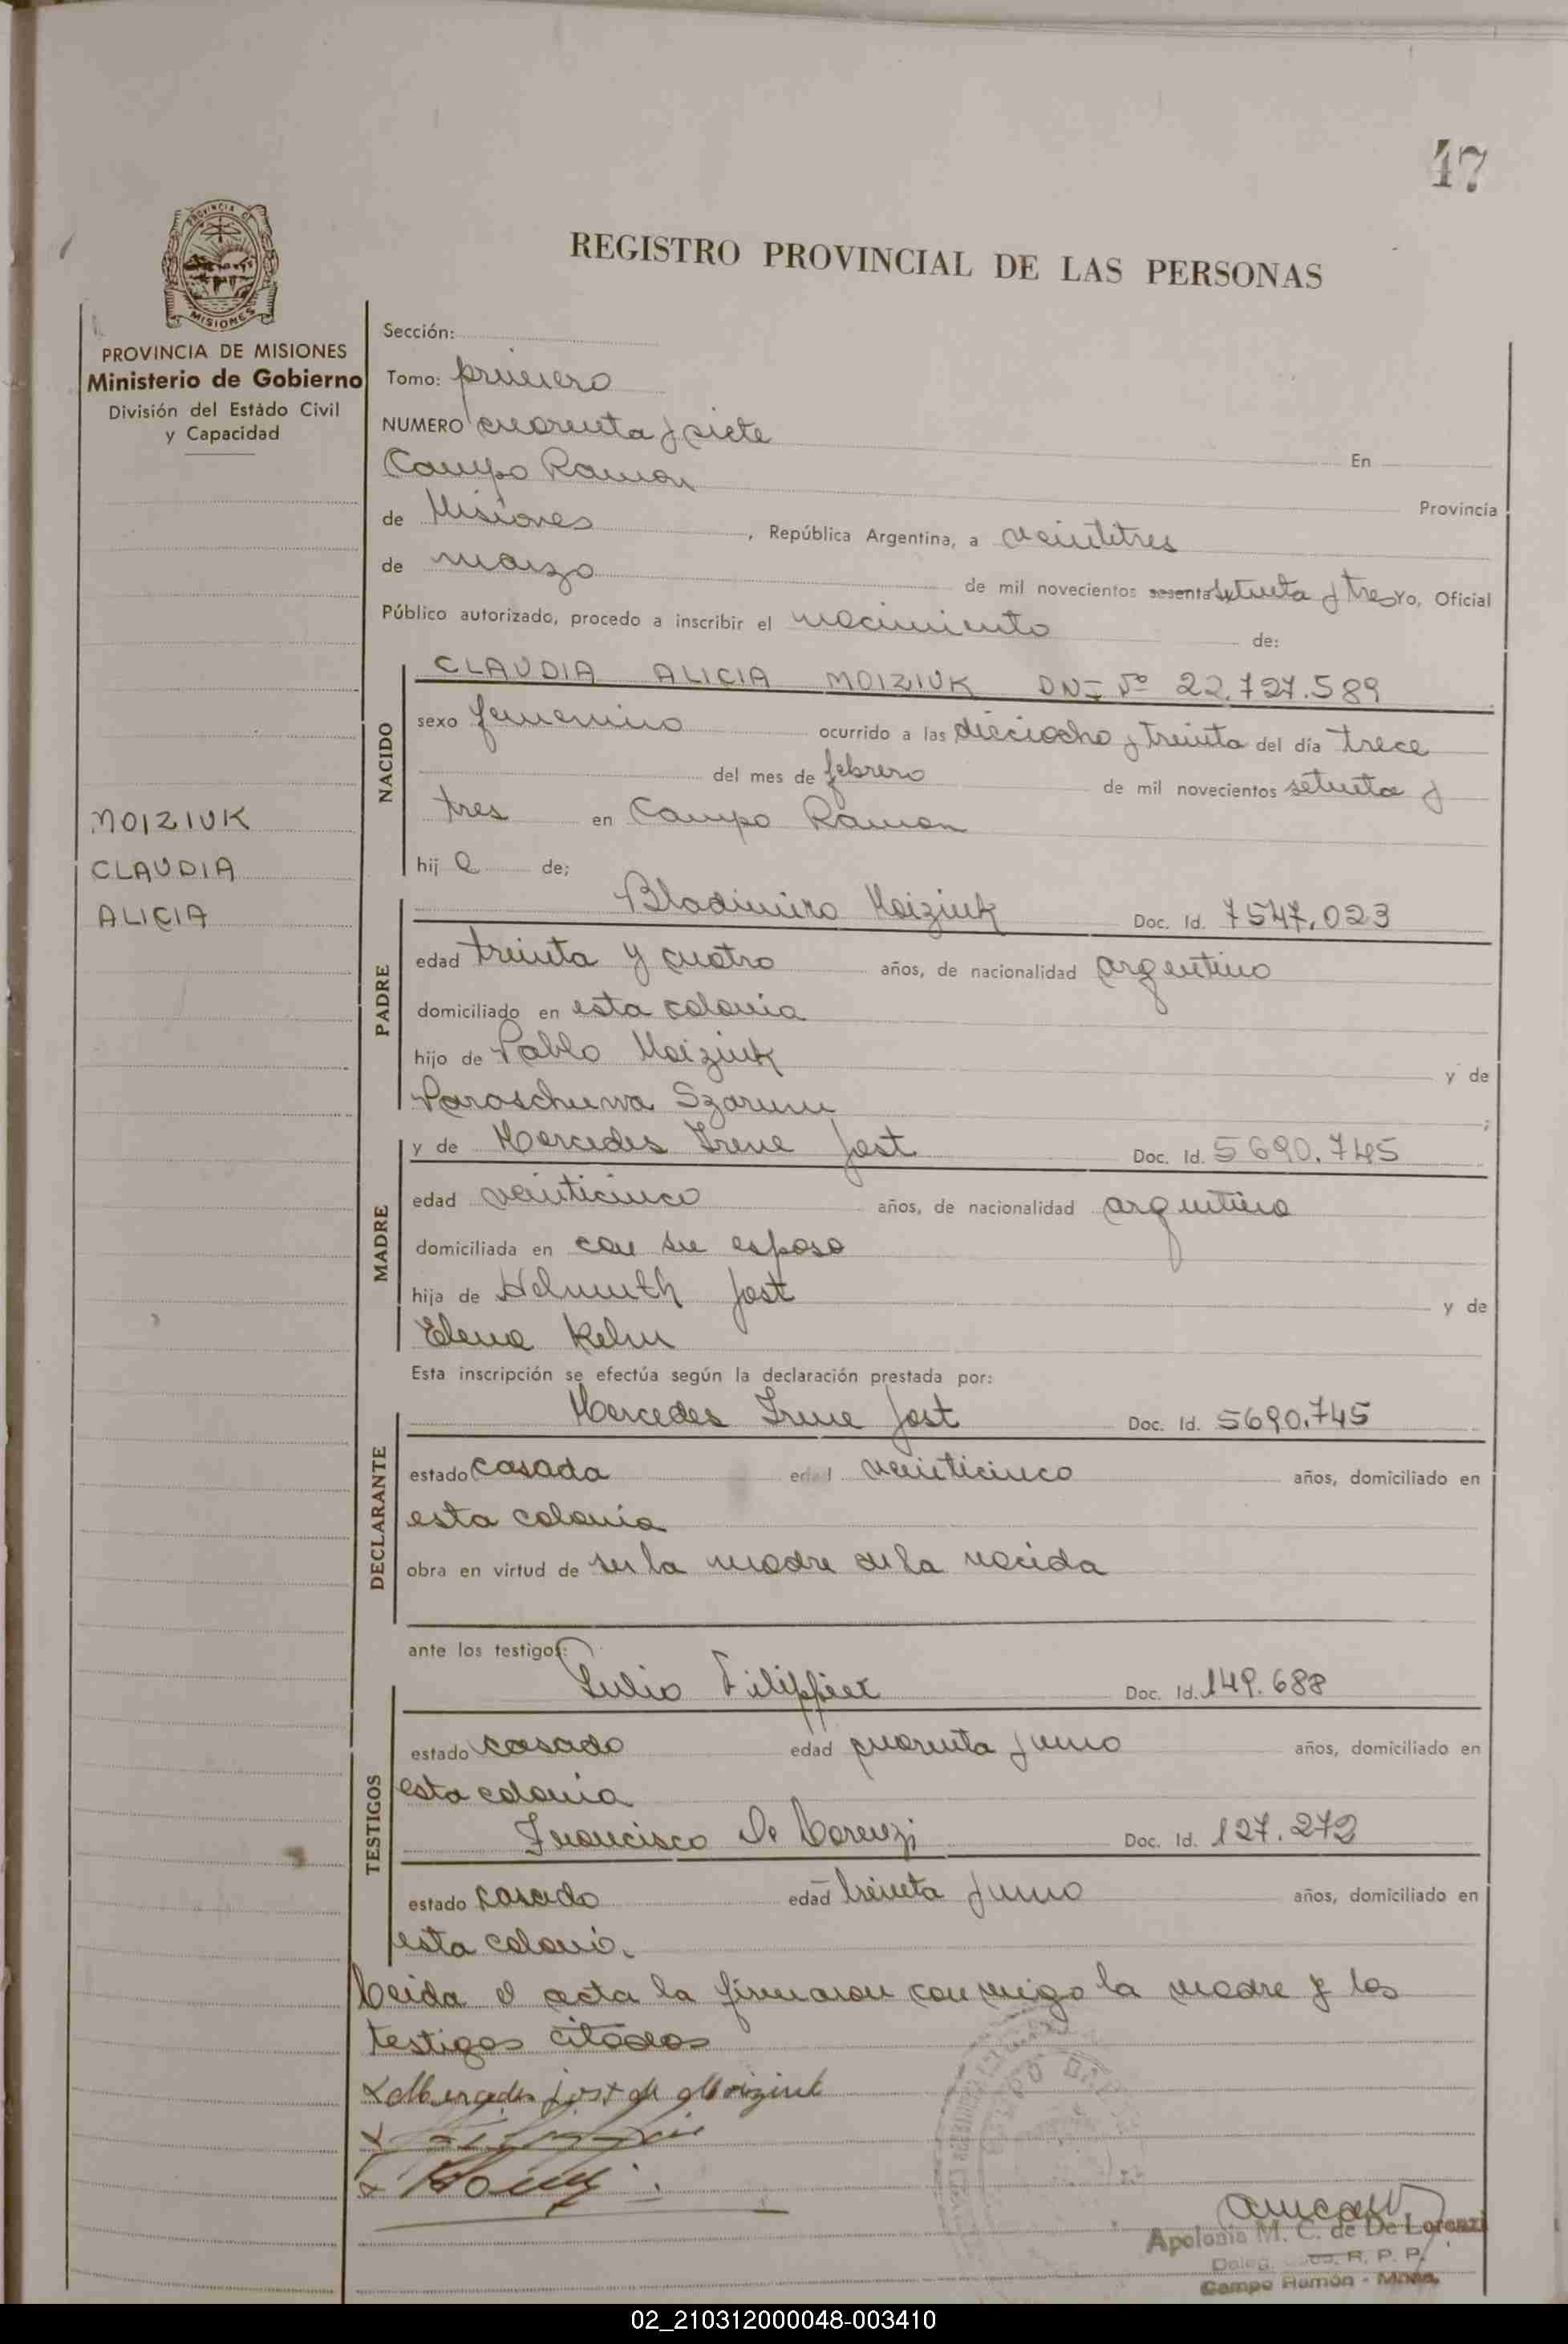 47
PROVINCIA DE
MISIONES
REGISTRO PROVINCIAL DE LAS PERSONAS
PROVINCIA DE MISIONES
Ministerio de Gobierno
División del Estado Civil
y Capacidad
MOIZIUK
CLAUDIA
ALICIA
Sección:
Tomo: primero
NUMERO cuarenta y siete En
Campo Ramon Provincia
de Misiones, República Argentina, a veintitres
de marzo de mil novecientos sesenta setenta y tres Yo, Oficial
Público autorizado, procedo a inscribir el nacimiento de:
CLAUDIA ALICIA MOIZIUK DNI Nº 22.727.589
NACIDO
sexo femenino ocurrido a las dieciocho y treinta del día trece
del mes de febrero de mil novecientos setenta y
tres en Campo Ramon
hij a de;
PADRE
Bladimiro Moiziuk Doc. Id. 7547.023
edad treinta y cuatro años, de nacionalidad argentino
domiciliado en esta colonia
hijo de Pablo Moiziuk y de
Paraschuwa ;
MADRE
y de Mercedes Irene Jost Doc. Id. 5690.745
edad veinticinco años, de nacionalidad argentina
domiciliada en con su esposo
hija de Helmuth Jost y de
Elena Kelm
Esta inscripción se efectúa según la declaración prestada por:
DECLARANTE
Mercedes Irene Jost Doc. Id. 5690.745
estado casada edad veinticinco años, domiciliado en
esta colonia
obra en virtud de ser la madre de la nacida
ante los testigos:
TESTIGOS
Julio Doc. Id. 149.688
estado casado edad cuarenta y uno años, domiciliado en
esta colonia
Francisco De Lorenzi Doc. Id. 127.272
estado casado edad treinta y uno años, domiciliado en
esta colonia.
Leida el acta la firmaron conmigo la madre y los
testigos citados
x Mercedes Jost de Moiziuk
x
x
Apolonia M. C. de De Lorenzi
Deleg. R. P. P.
Campo Ramón - Mnes.
02_210312000048-003410